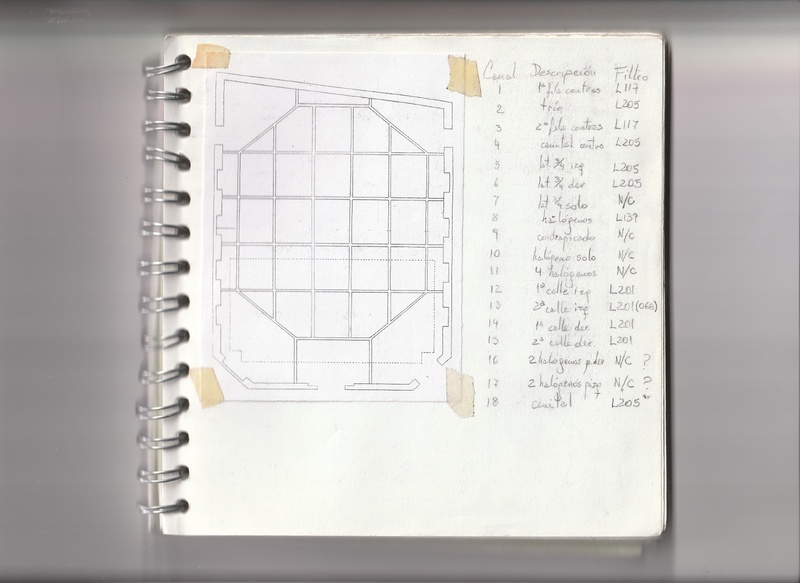 Canal Descripción Filtro
1 1ª fila centros L117
2 trío L205
3 2ª fila centros L117
4 cenital centro L205
5 lat. 3/4 izq L205
6 lat. 3/4 der L205
7 lat 3/4 solo N/C
8 halógenos L139
9 contrapicado N/C
10 halógeno solo N/C
11 4 halógenos N/C
12 1ª calle izq L201
13 2ª calle izq L201(066)
14 1ª calle der L201
15 2ª calle der. L201
16 2 halógenos p.der N/C ?
17 2 halógenos pizq N/C ?
18 cenital L205